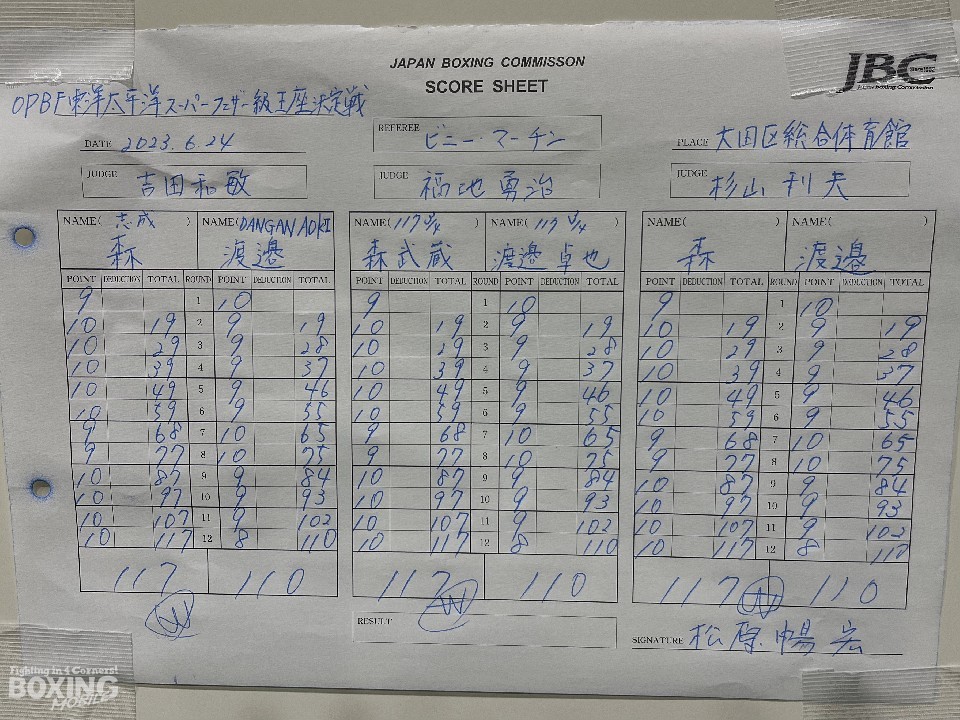 JAPAN BOXING COMMISSON
SCORE SHEET
JBC
OPBF東洋太平洋スーパーフェザー級王座決定戦
DATE 2023.6.24 REFEREE ビニー・マーチン PLACE 大田区総合体育館
JUDGE 吉田和敏 JUDGE 福地勇治 JUDGE 杉山利夫
NAME( 志成 ) NAME(DANGAN AOKI NAME(117 3/4 ) NAME( 117 1/4 ) NAME( ) NAME( )
森 渡邉 森武蔵 渡邉卓也 森 渡邉
POINT DEDUCTION TOTAL ROUND POINT DEDUCTION TOTAL POINT DEDUCTION TOTAL ROUND POINT DEDUCTION TOTAL POINT DEDUCTION TOTAL ROUND POINT DEDUCTION TOTAL
9 1 10 9 1 10 9 1 10
10 19 2 9 19 10 19 2 9 19 10 19 2 9 19
10 29 3 9 28 10 29 3 9 28 10 29 3 9 28
10 39 4 9 37 10 39 4 9 37 10 39 4 9 37
10 49 5 9 46 10 49 5 9 46 10 49 5 9 46
10 59 6 9 55 10 59 6 9 55 10 59 6 9 55
9 68 7 10 65 9 68 7 10 65 9 68 7 10 65
9 77 8 10 75 9 77 8 10 75 9 77 8 10 75
10 87 9 9 84 10 87 9 9 84 10 87 9 9 84
10 97 10 9 93 10 97 10 9 93 10 97 10 9 93
10 107 11 9 102 10 107 11 9 102 10 107 11 9 102
10 117 12 8 110 10 117 12 8 110 10 117 12 8 110
117 110 117 110 117 110
W W W
RESULT
SIGNATURE 松原暢宏
Fighting in 4 Corners!
BOXING
MOBILE